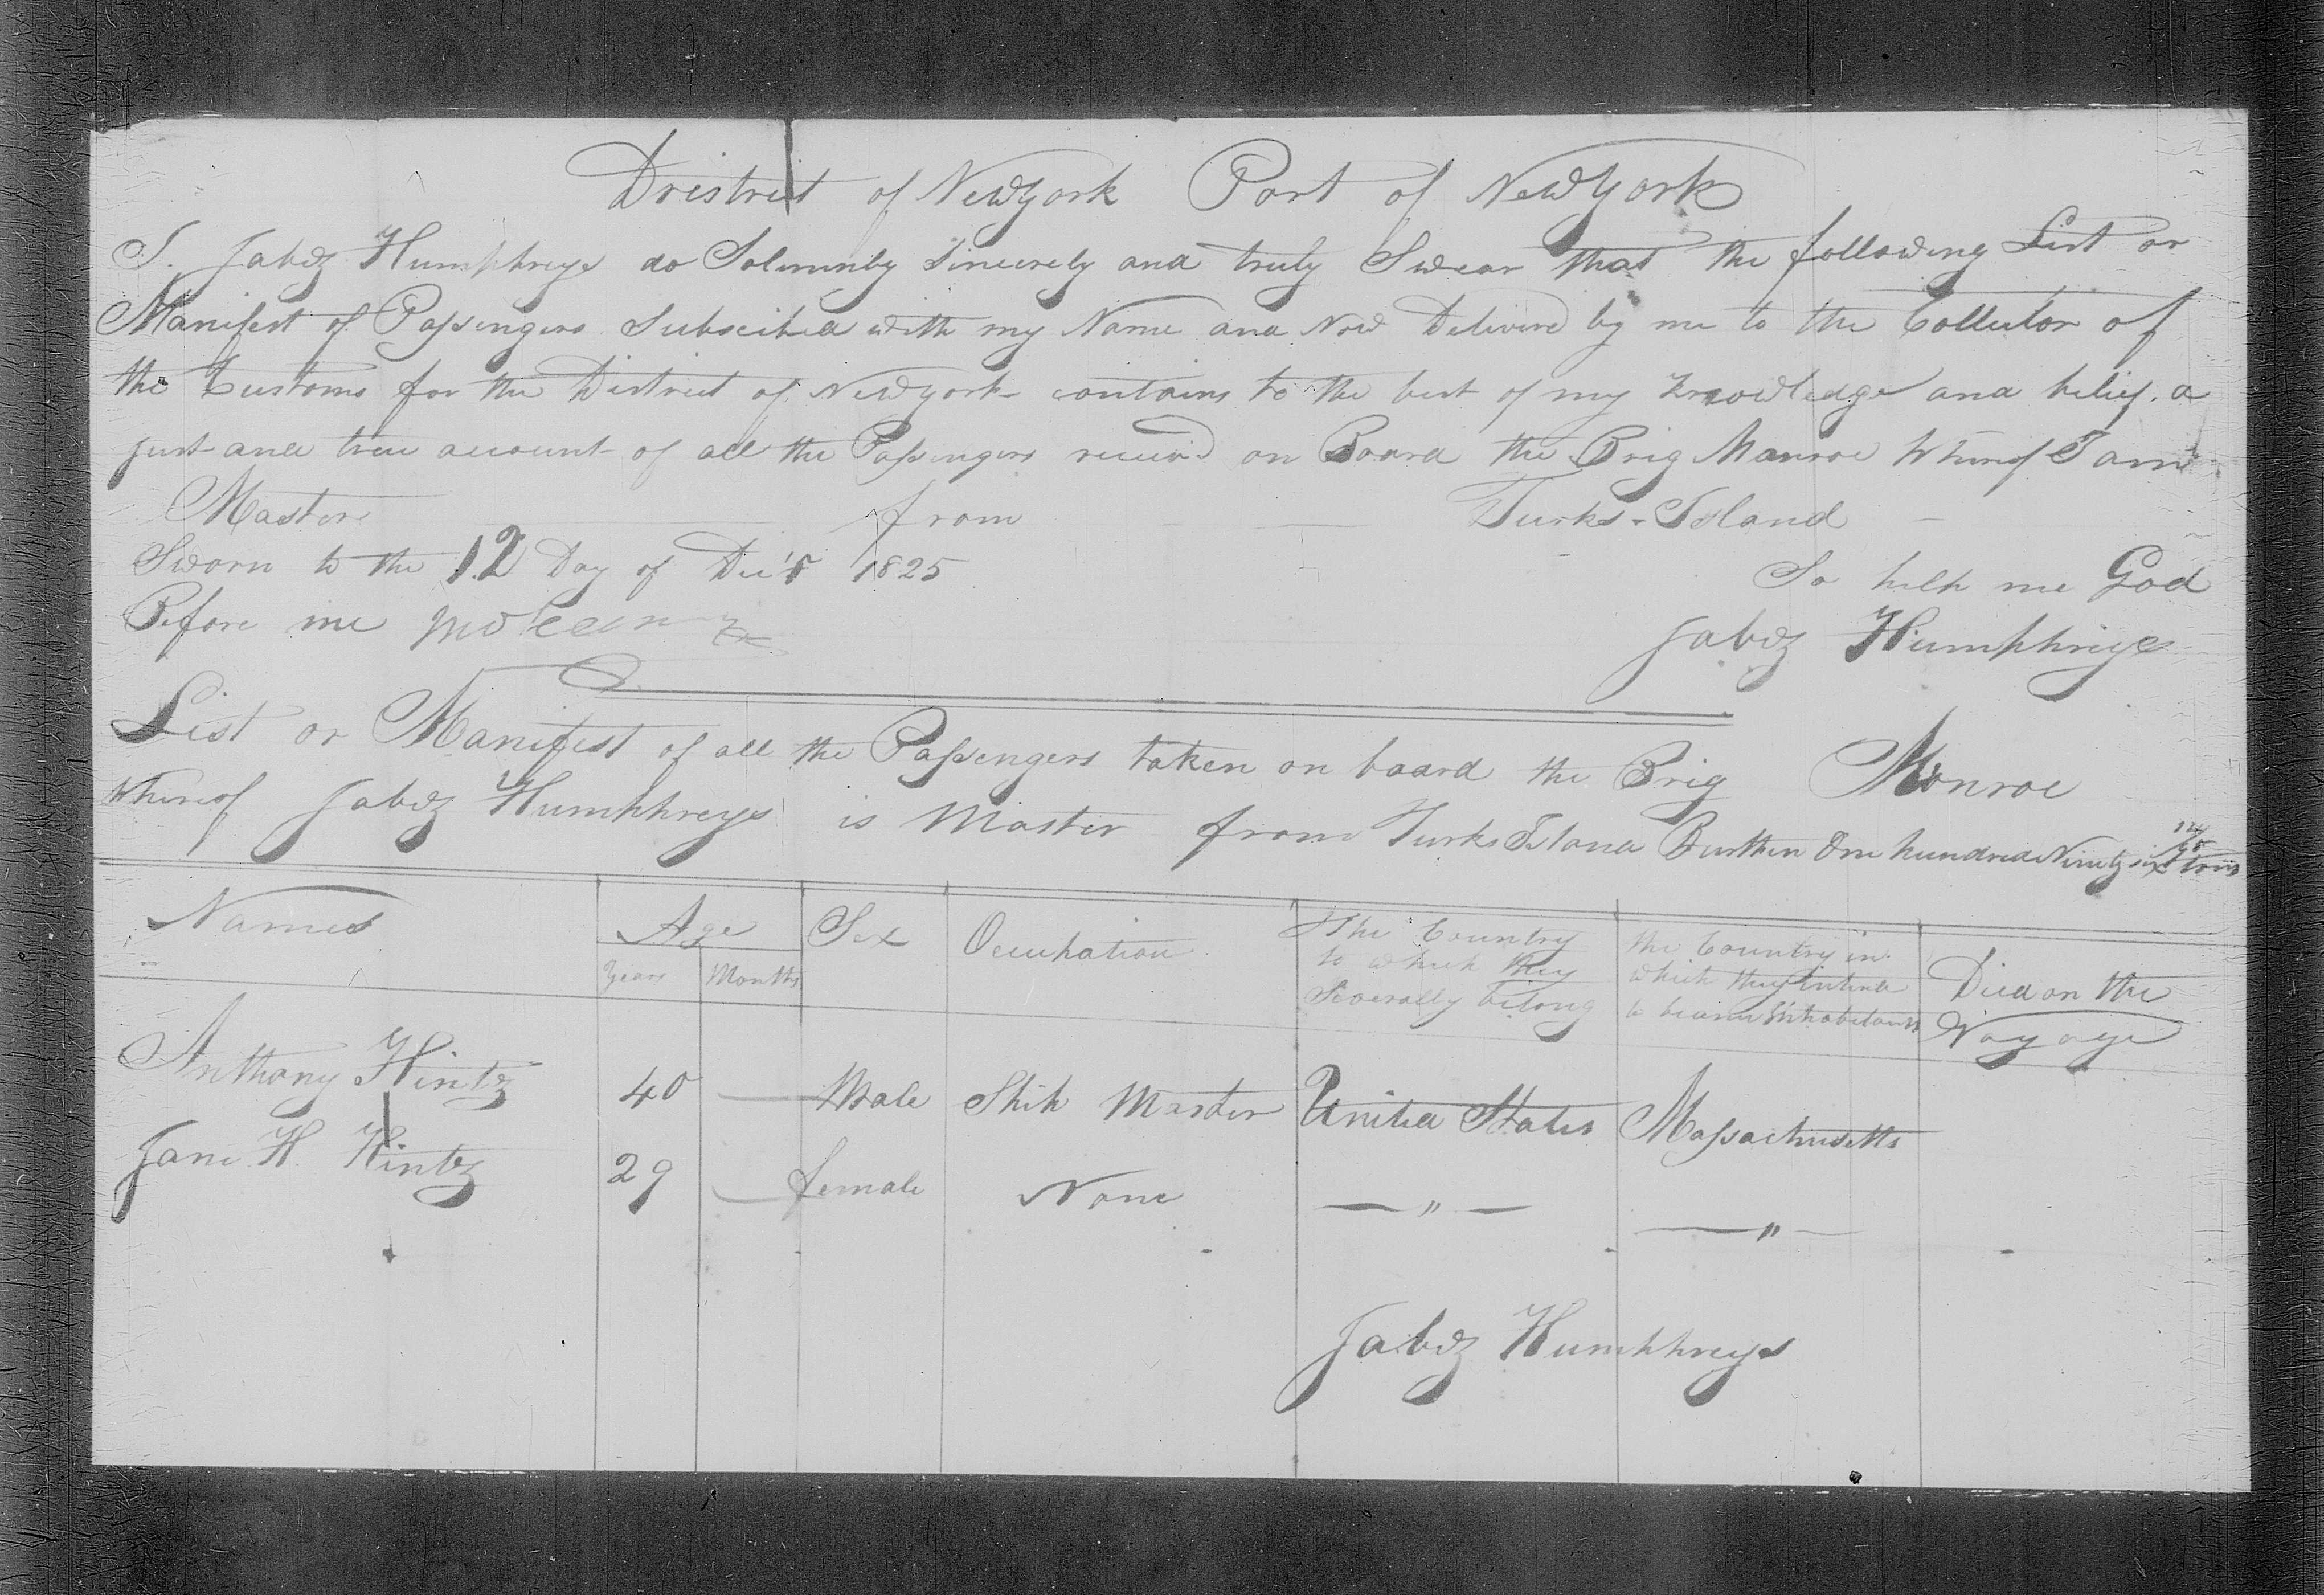 Dristrict of New york Port of New york
I. Jabez Humphreys do Solemnly Sincerely and truly Swear that the following List or
Manifest of Passengers Subscibed with my Name and Now Deliverd by me to the Collector of
the Customs for the District of New york contains to the best of my Knowledge and belief. a
just and true account of all the Passengers receivd on Board the Brig Monroe Whereof I am
Master from Turks-Island
Sworn to the 12 Day of Dec'r 1825
So help me God
Before me
Jabez Humphreys
List or Manifest of all the Passengers taken on board the Brig Monroe
Whereof Jabez Humphreys is Master from Turks Island Burthen One hundred Ninety six tons
Names Age Sex Occupation The Country to which they Severally belong the Country in which they intend to become Inhabitants Died on the Voyage
Years Months
Anthony Hintz 40 — Male Ship Master United States Massachusetts
Jane H. Hintz 29 — female None — " — — " —
Jabez Humphreys